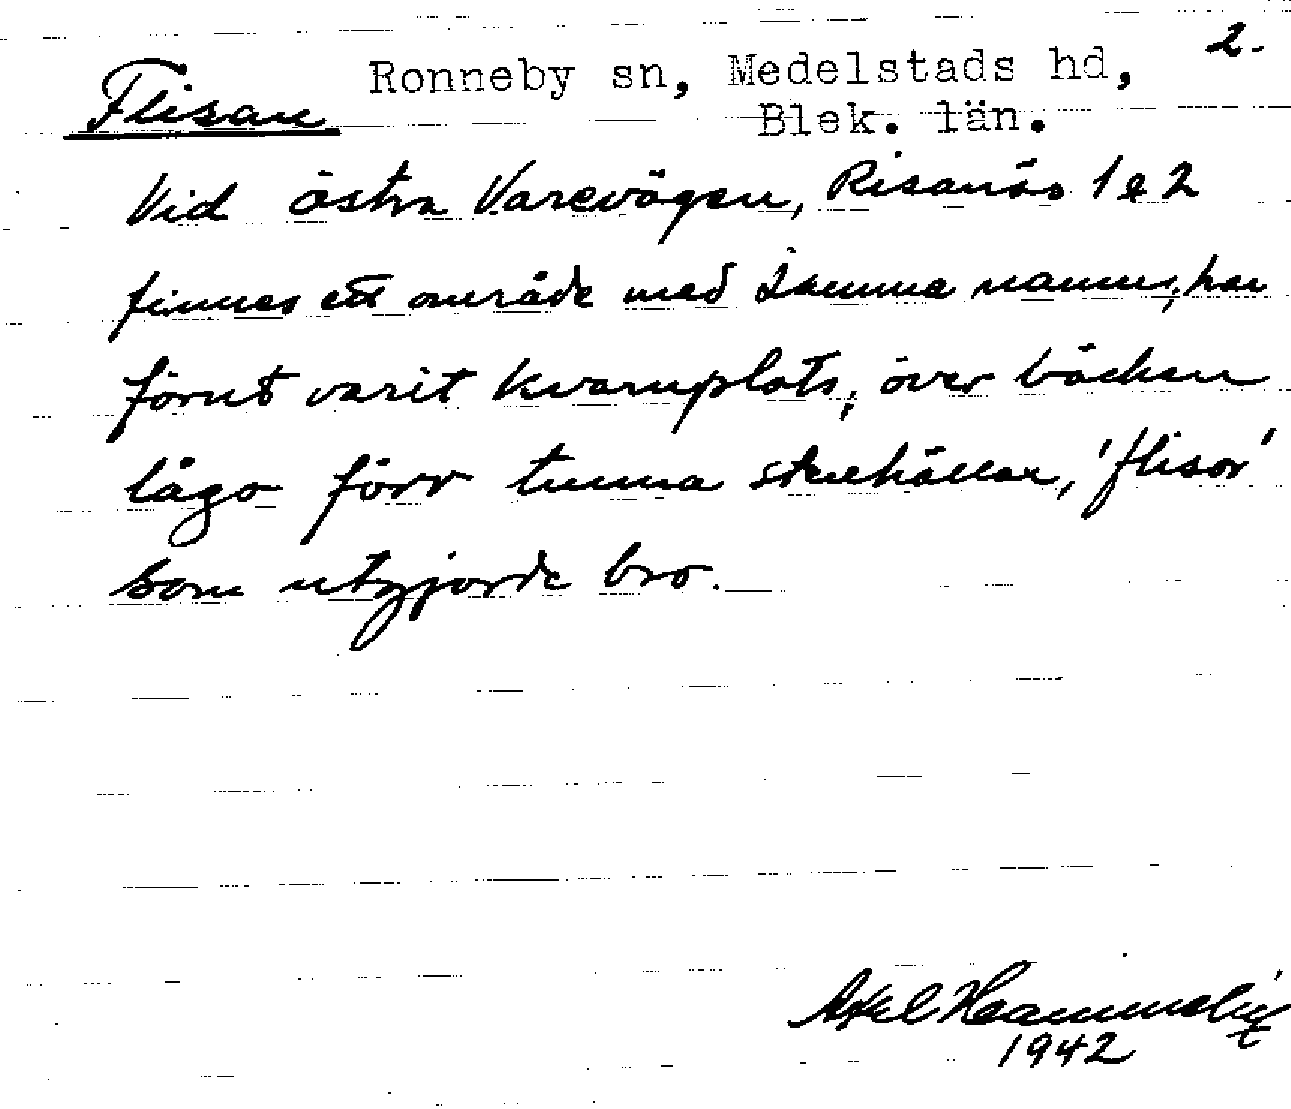 2.
Flisan Ronneby sn, Medelstads hd,
Blek. län.
Vid östra Varevägen, Risanäs 1 & 2
finnes ett område med samma namn, har
förut varit kvarnplats, över bäcken
lågo förr tunna stenhällar, 'flisor'
som utgjorde bro.
Axel
1942